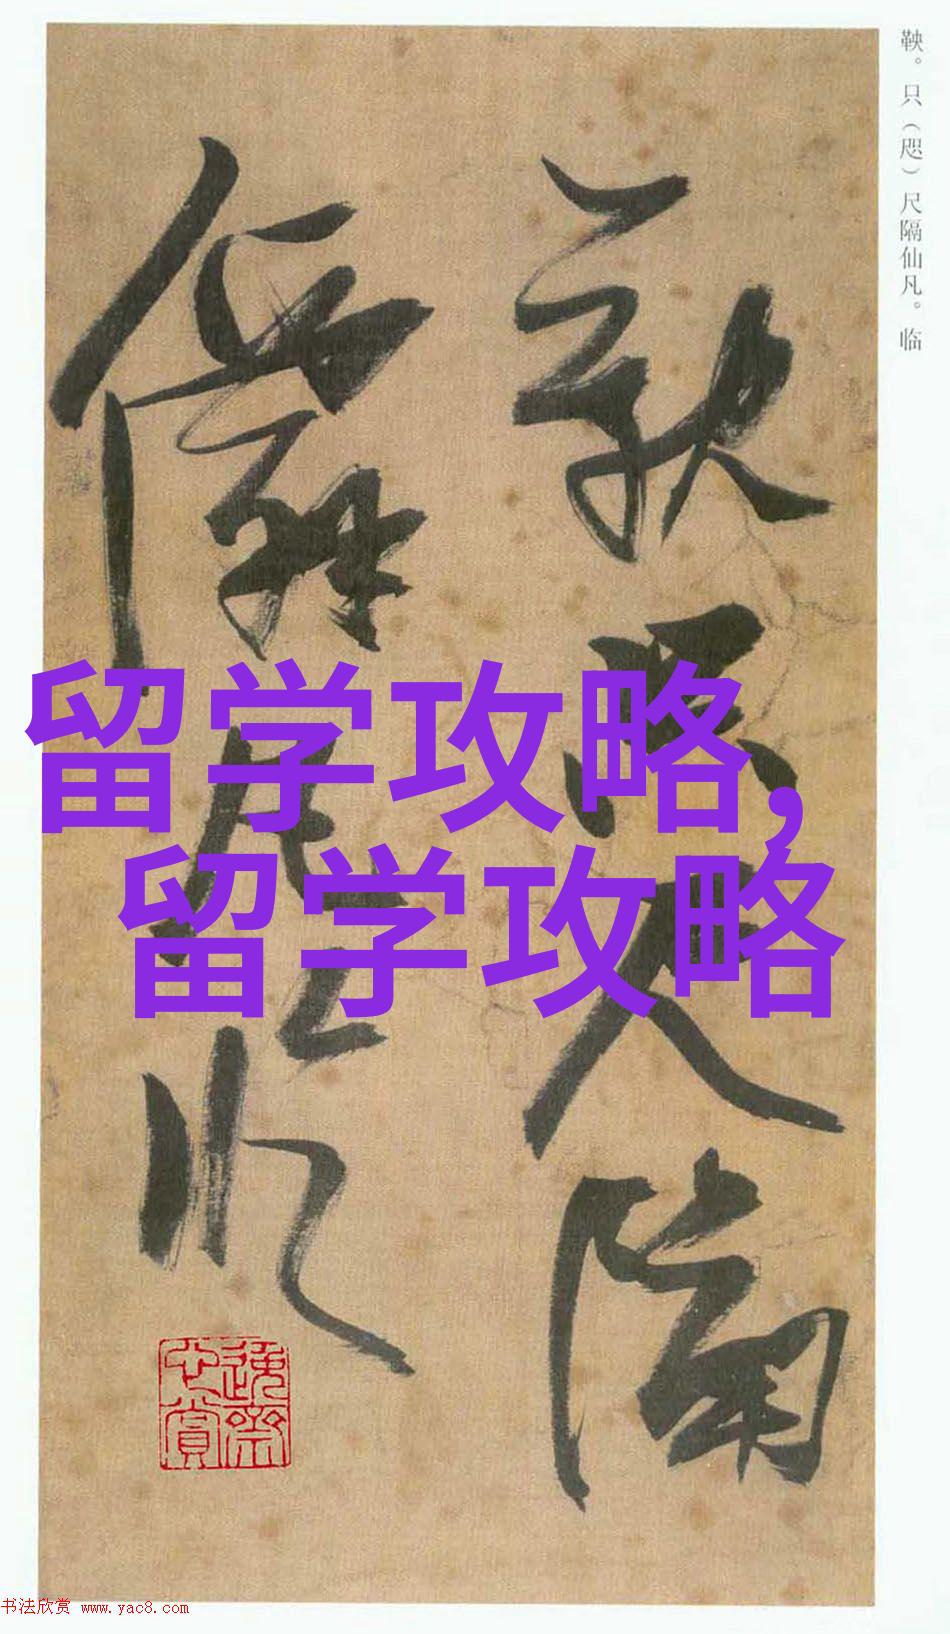 鞅。只（咫）尺隔仙凡。临
鞅只尺隔
僊凡臨
留学攻略,
留学攻略
书法欣赏 www.yac8.com